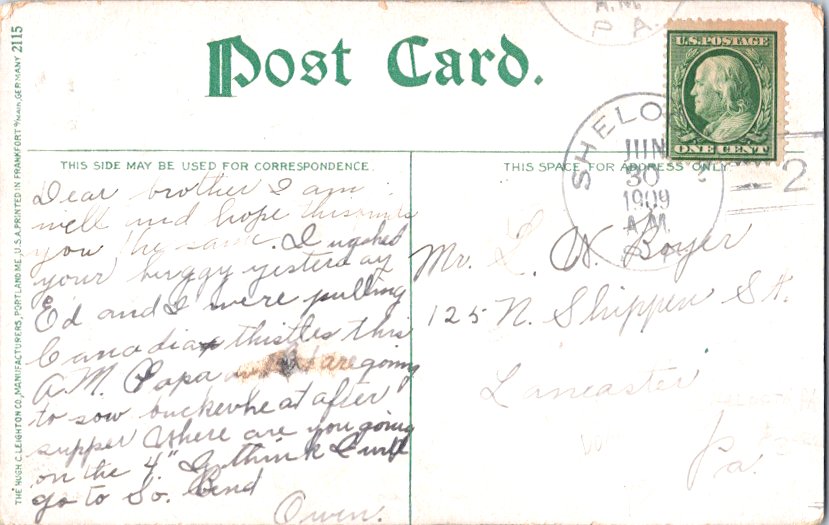 A.M.
P A.
Post Card.
U.S. POSTAGE
ONE CENT
SHELO
JUN
30
1909
A.M.
2
THIS SIDE MAY BE USED FOR CORRESPONDENCE.
THIS SPACE FOR ADDRESS ONLY
THE HUGH C. LEIGHTON CO., MANUFACTURERS, PORTLAND, ME., U.S.A. PRINTED IN FRANKFORT o/MAIN, GERMANY 2115
Dear brother I am
well and hope this
you the same. I washed
your buggy yesterday
Ed and I were pulling
Canadia thistles this
A.M. Papa are going
to sow buckwheat after
supper Where are you going
on the 4." I think I will
go to So. Bend
Owen.
Mr. L. N. Boyer
125 N. Shippen St.
Lancaster
Pa.